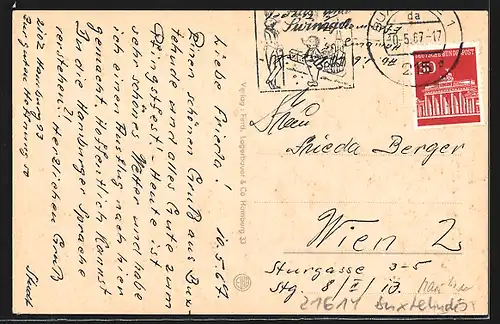 Liebe Frieda!
10.5.67.
Einen schönen Gruß aus Bux-
tehude und alles Gute zum
Pfingstfest. Heute ist
sehr schönes Wetter und habe
ich einen Ausflug nach hier
gemacht. Hoffentlich kannst
Du die Hamburger Sprache
verstehen?! Herzlichen Gruß
2102 Hamburg 93
Zur guten Hoffnung
Verlag: Ferd. Lagerbauer & Co Hamburg 33
Swinegel
da
1
0.-5.67-17
215
DEUTSCHE BUNDESPOST
Frau
Frieda Berger
Wien 2
Sturgasse 3-5
Stg. 8/I/10.
21614 Buxtehude